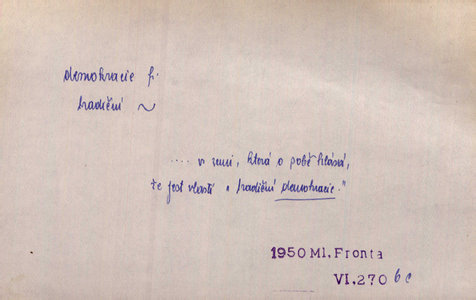 demokracie f.
tradiční ~
.... v zemi, která o sobě hlásá,
že jest vlastí „tradiční demokracie."
1950 Ml. Fronta
VI. 270 6c